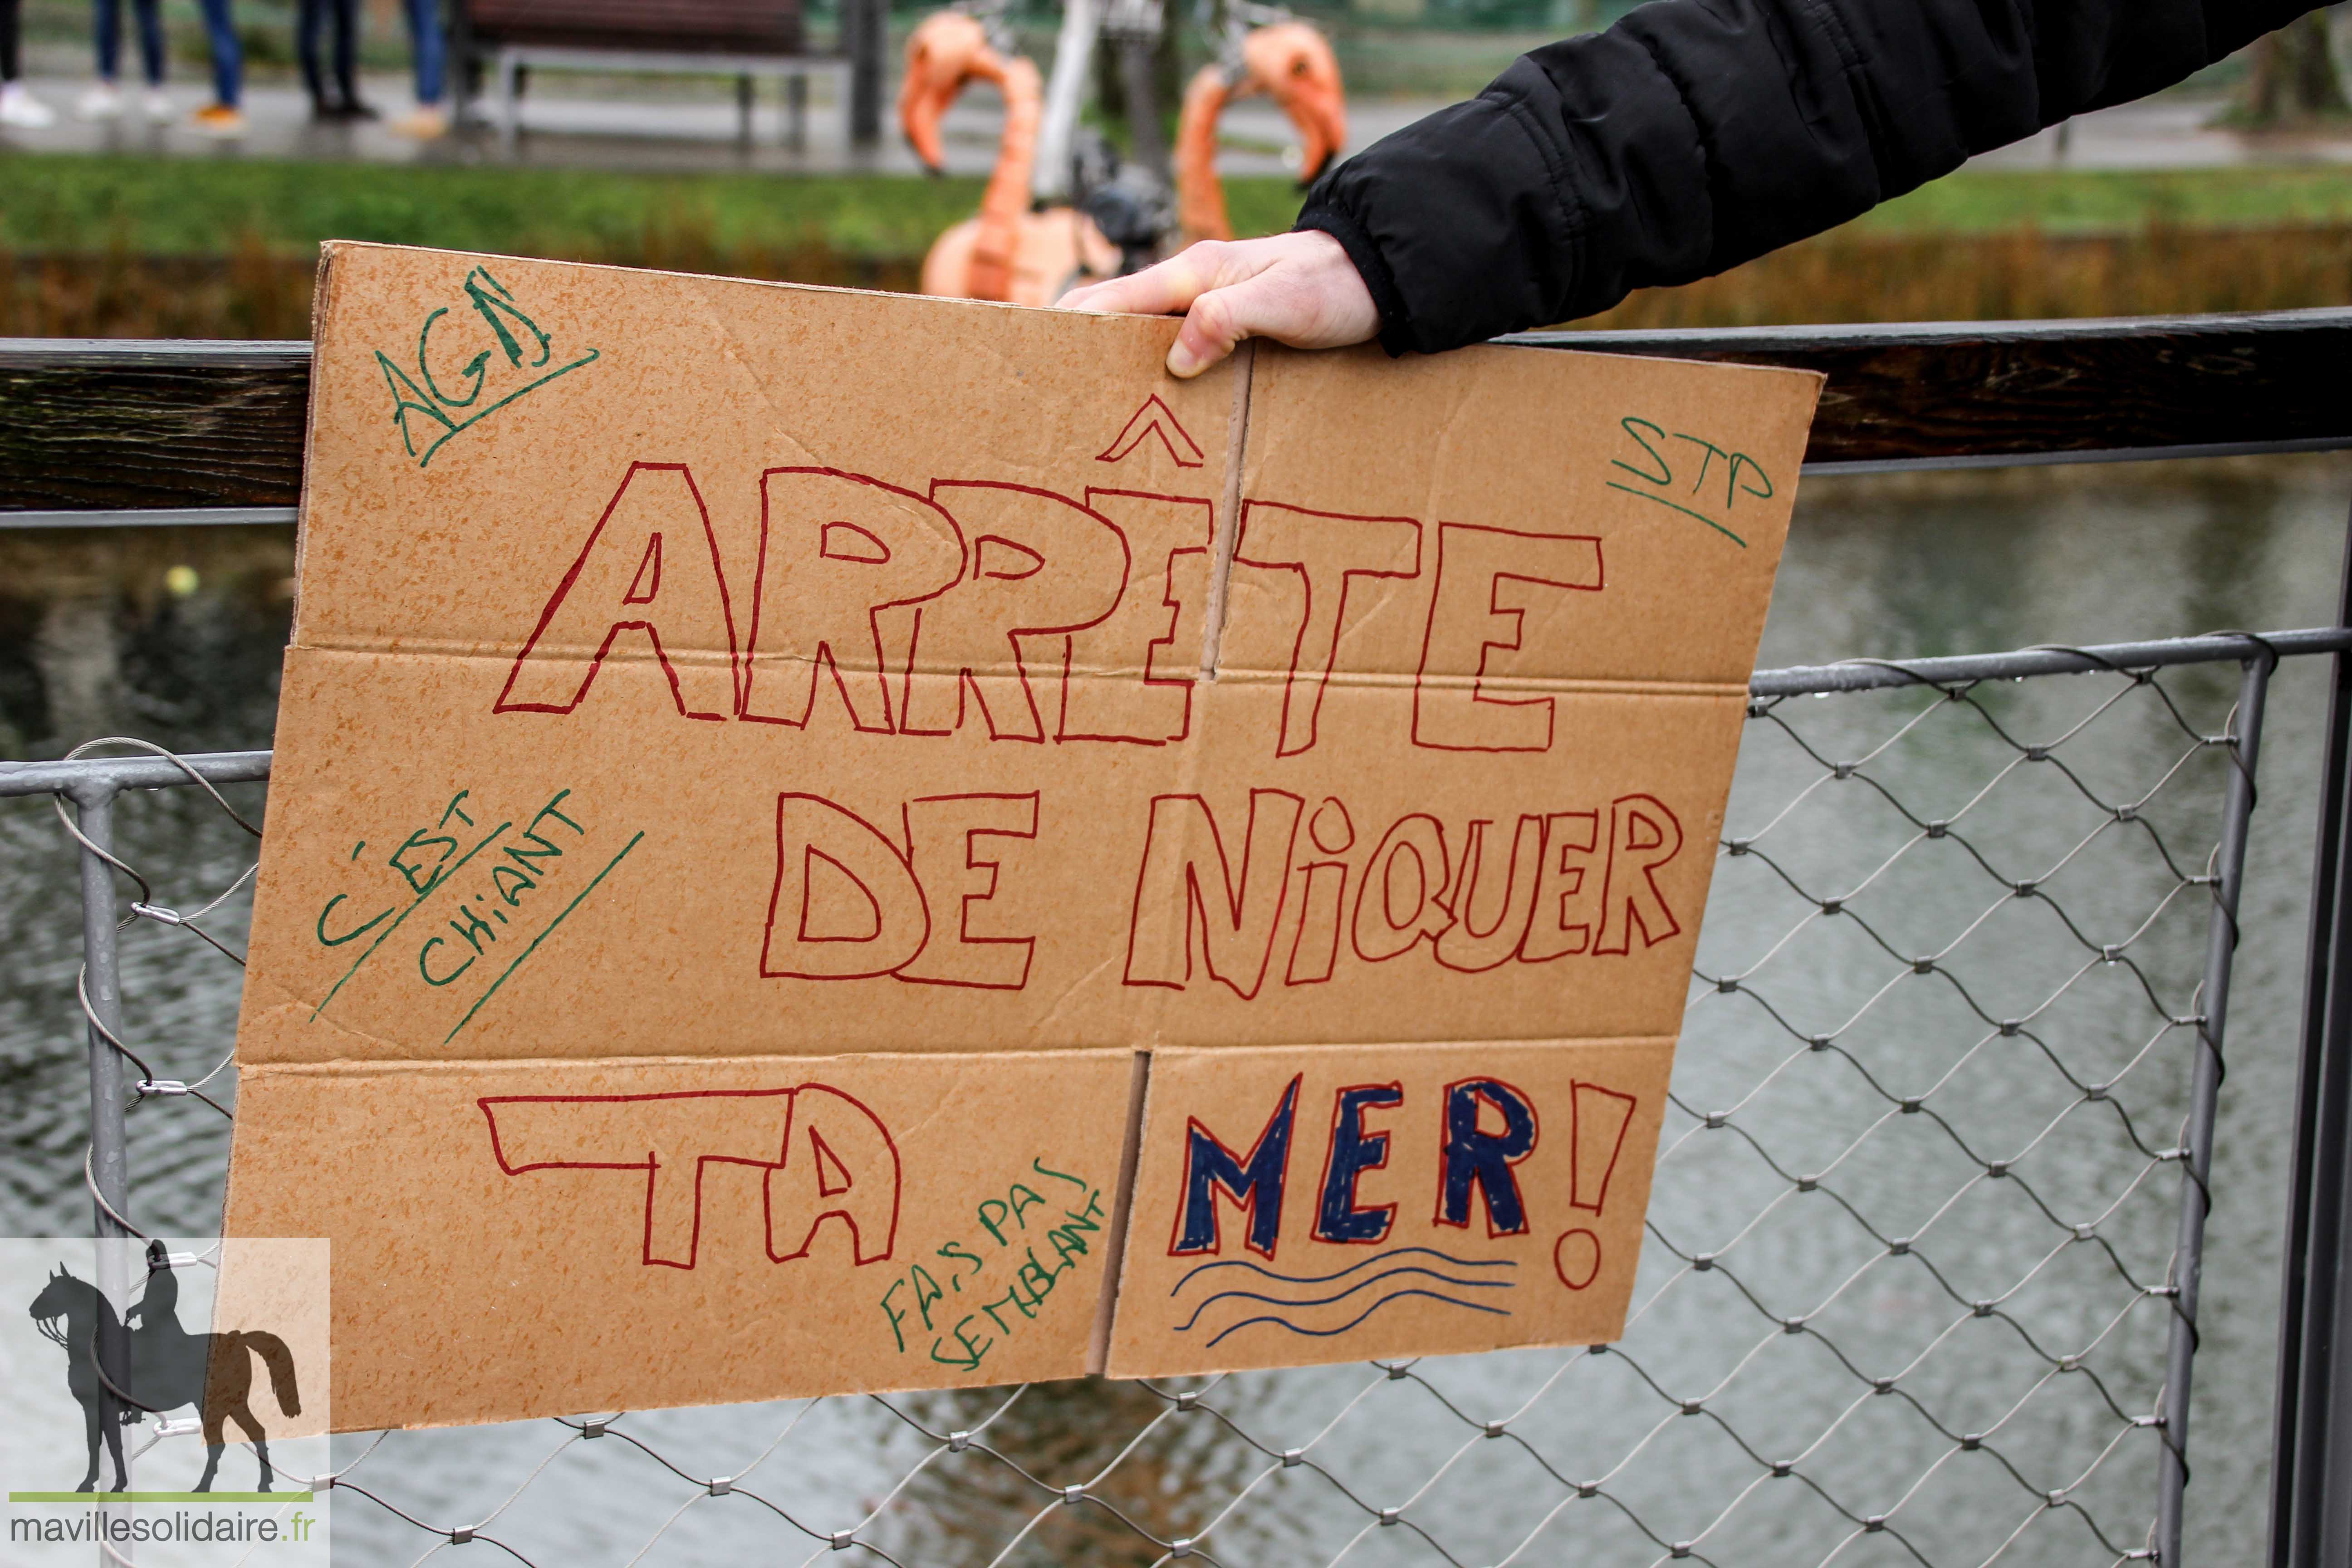 AGIS
STP
ARRÊTE
DE NiQUER
C'EST
CHiANT
TA MER!
FAiS PAS
SEMBLANT
mavillesolidaire.fr